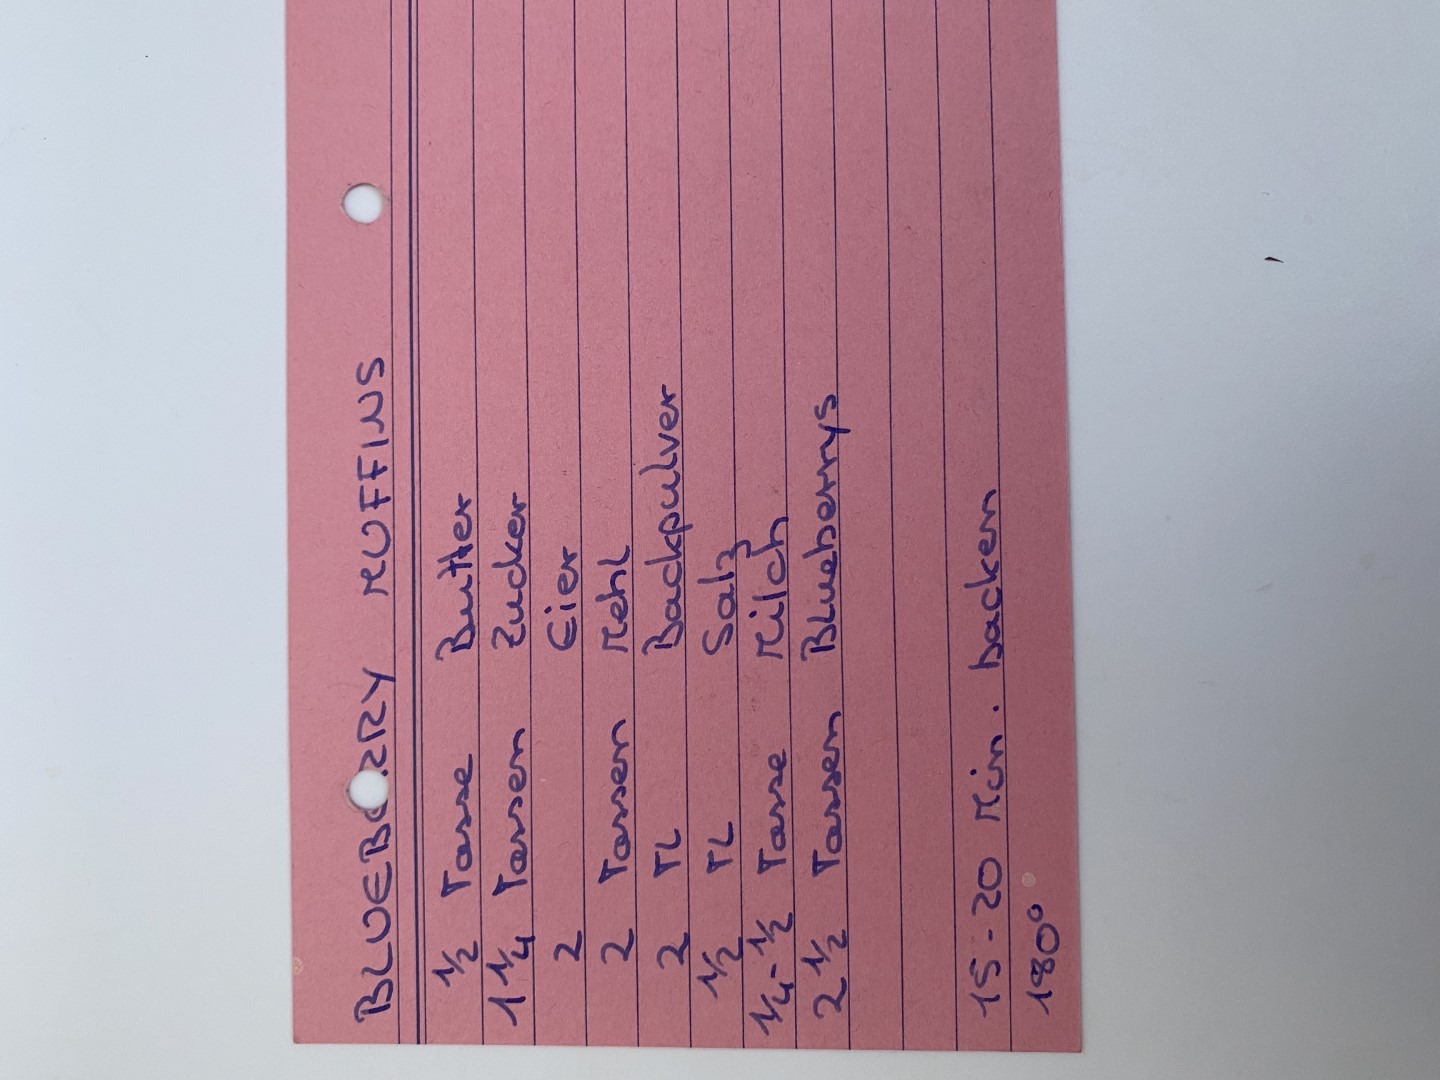 BLUEBERRY MUFFINS
1/2 Tasse Butter
1 1/4 Tassen Zucker
2 Eier
2 Tassen Mehl
2 TL Backpulver
1/2 TL Salz
1/4-1/2 Tasse Milch
2 1/2 Tassen Blueberrys
15-20 Min. backen
180°